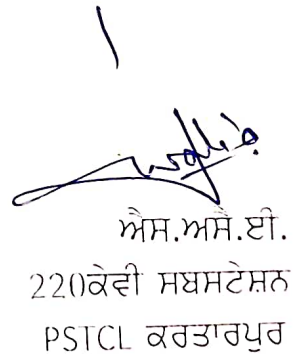 ਐਸ.ਐਸ.ਈ.
220ਕੇਵੀ ਸਬਸਟੇਸ਼ਨ
PSTCL ਕਰਤਾਰਪੁਰ